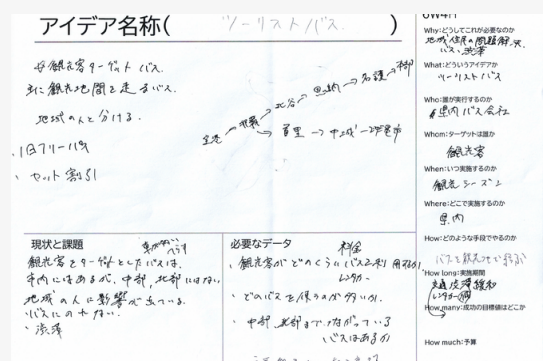 アイデア名称( ツーリストバス )
観光客ターゲットバス。
主に観光地間を走るバス。
地域の人と分ける。
・1日フリー
・セット割引
空港 → 那覇 → 北谷 → 恩納 → 名護 → 本部
→ 首里 → 中城
現状と課題
観光客をターゲットとしたバスは、
市内にはあるが、中部、北部にはない
地域の人に影響が出ている。
バスにのれない。
・渋滞
必要なデータ
料金
・観光客がどのくらいバスを利用するか
レンタカー
・どのバスを使うのが多いか。
・中部、北部までつながっている
バスはあるか
6W4H
Why:どうしてこれが必要なのか
地域住民の問題解決。
バス、渋滞
What:どういうアイデアか
ツーリストバス
Who:誰が実行するのか
県内バス会社
Whom:ターゲットは誰か
観光客
When:いつ実施するのか
観光シーズン
Where:どこで実施するのか
県内
How:どのような手段でやるのか
How long:実施期間
交通渋滞緩和
How many:成功の目標値はどこか
How much:予算